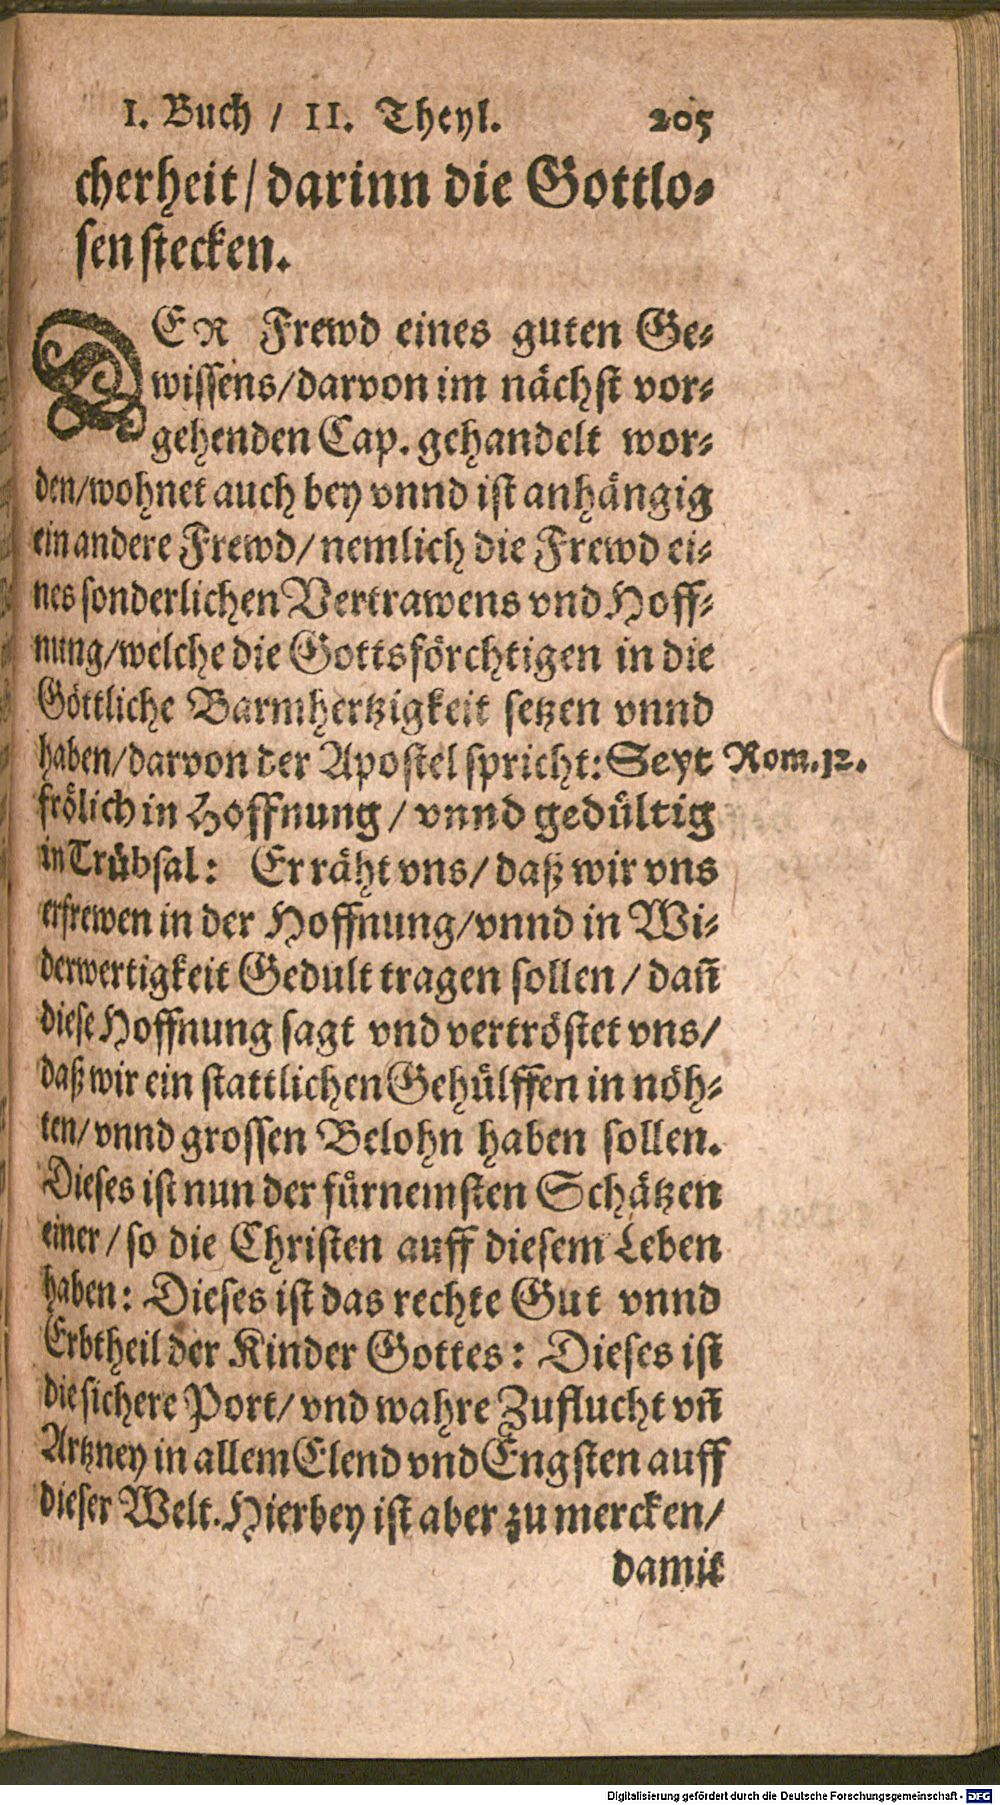 I. Buch / II. Theyl. 205
cherheit/ darinn die Gottlo-
sen stecken.
DER Frewd eines guten Ge-
wissens/ darvon im nächst vor-
gehenden Cap. gehandelt wor-
den/ wohnet auch bey vnnd ist anhängig
ein andere Frewd/ nemlich die Frewd ei-
nes sonderlichen Vertrawens vnd Hoff-
nung/ welche die Gottsförchtigen in die
Göttliche Barmhertzigkeit setzen vnnd
haben/ darvon der Apostel spricht: Seyt Rom. 12.
frölich in Hoffnung / vnnd gedültig
in Trübsal: Er räht vns/ daß wir vns
erfrewen in der Hoffnung/ vnnd in Wi-
derwertigkeit Gedult tragen sollen / dañ
diese Hoffnung sagt vnd vertröstet vns/
daß wir ein stattlichen Gehülffen in nöh-
ten/ vnnd grossen Belohn haben sollen.
Dieses ist nun der fürnemsten Schätzen
einer / so die Christen auff diesem Leben
haben: Dieses ist das rechte Gut vnnd
Erbtheil der Kinder Gottes: Dieses ist
die sichere Port/ vnd wahre Zuflucht vñ
Artzney in allem Elend vnd Engsten auff
dieser Welt. Hierbey ist aber zu mercken/
damit
Digitalisierung gefördert durch die Deutsche Forschungsgemeinschaft - DFG